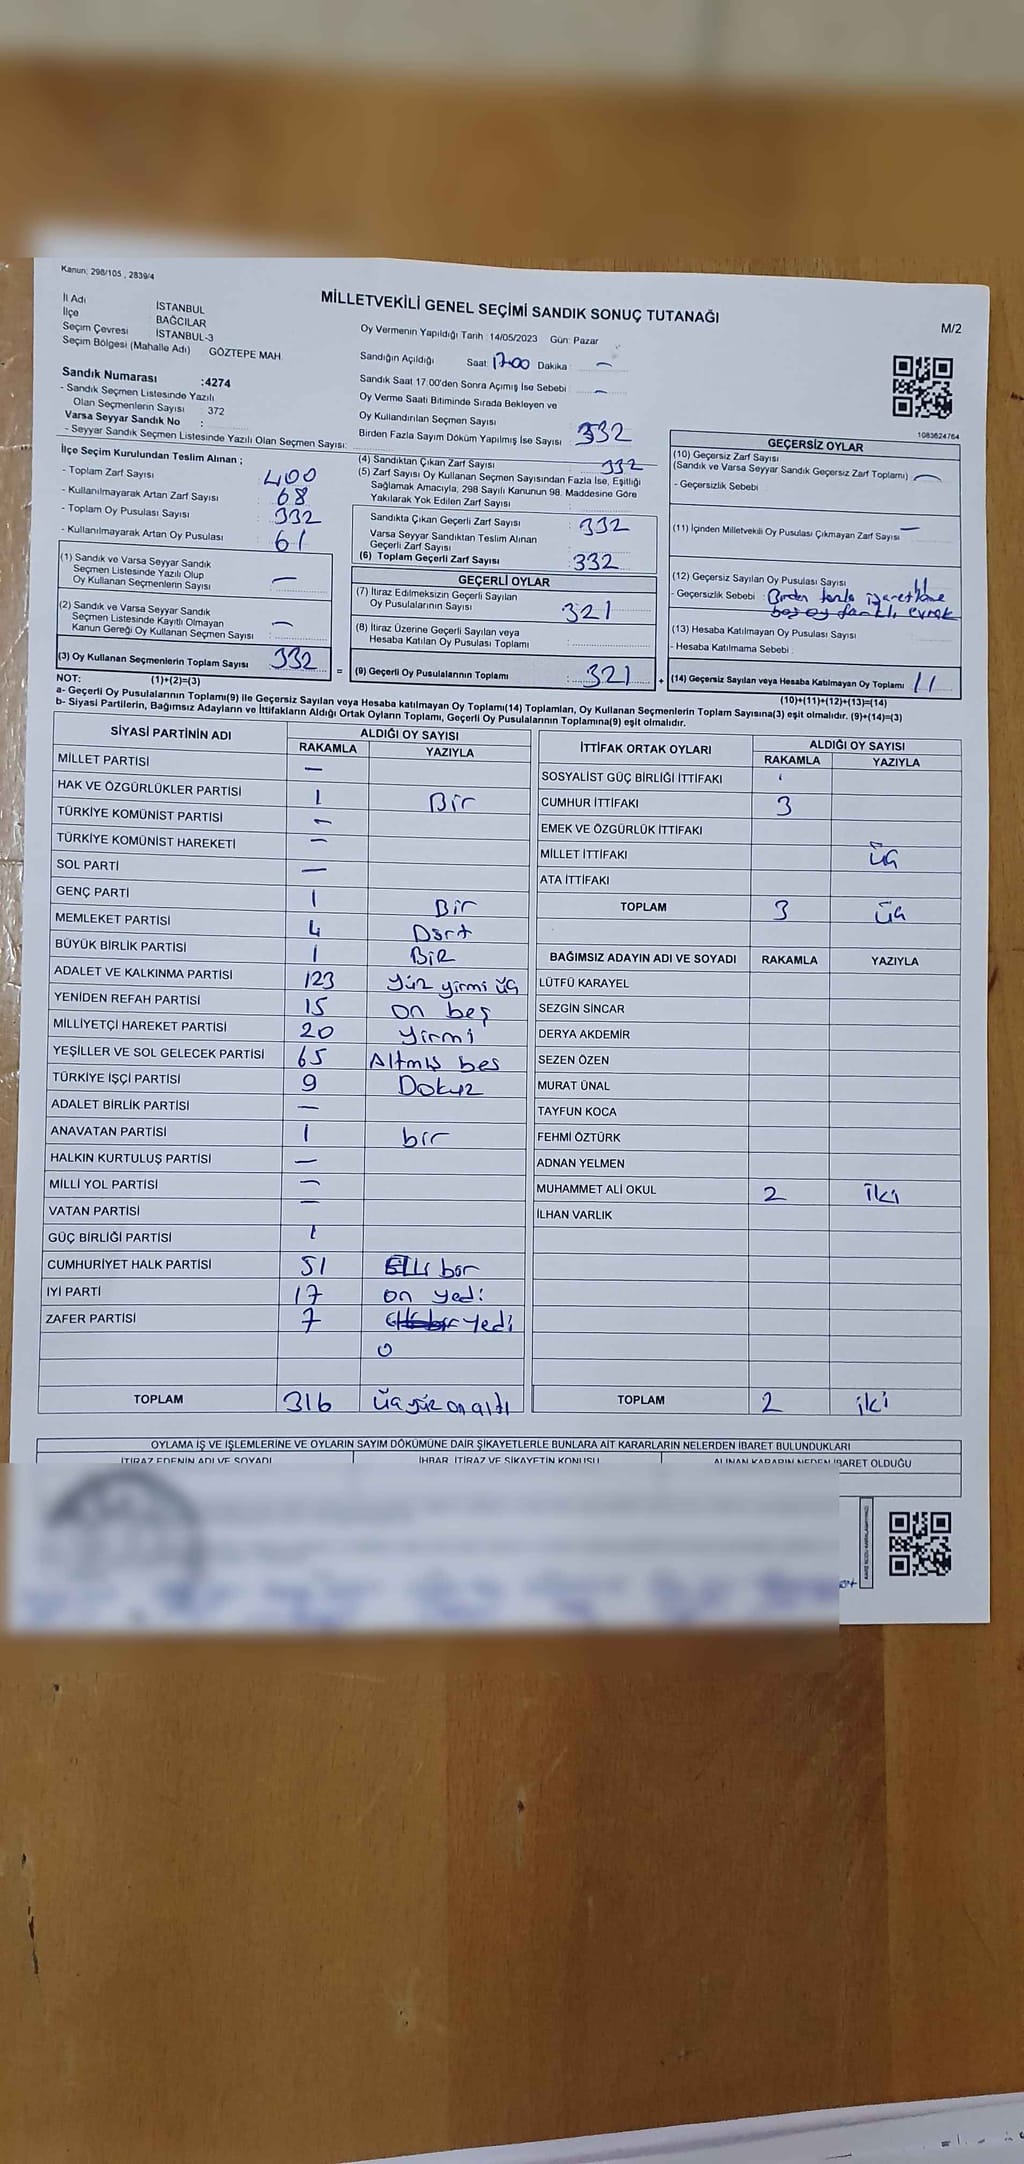 Kanun; 298/105 , 2839/4
MİLLETVEKİLİ GENEL SEÇİMİ SANDIK SONUÇ TUTANAĞI
M/2
İl Adı İSTANBUL
İlçe BAĞCILAR
Seçim Çevresi İSTANBUL-3
Seçim Bölgesi (Mahalle Adı) GÖZTEPE MAH.
Sandık Numarası :4274
- Sandık Seçmen Listesinde Yazılı
Olan Seçmenlerin Sayısı : 372
Varsa Seyyar Sandık No :
- Seyyar Sandık Seçmen Listesinde Yazılı Olan Seçmen Sayısı:
Oy Vermenin Yapıldığı Tarih :14/05/2023 Gün: Pazar
Sandığın Açıldığı Saat: 17.00 Dakika : —
Sandık Saat 17:00'den Sonra Açımış İse Sebebi : —
Oy Verme Saati Bitiminde Sırada Bekleyen ve
Oy Kullandırılan Seçmen Sayısı
Birden Fazla Sayım Döküm Yapılmış İse Sayısı : 332
1083624764
İlçe Seçim Kurulundan Teslim Alınan ;
- Toplam Zarf Sayısı 400
- Kullanılmayarak Artan Zarf Sayısı 68
- Toplam Oy Pusulası Sayısı 332
- Kullanılmayarak Artan Oy Pusulası 61
(1) Sandık ve Varsa Seyyar Sandık
Seçmen Listesinde Yazılı Olup
Oy Kullanan Seçmenlerin Sayısı —
(2) Sandık ve Varsa Seyyar Sandık
Seçmen Listesinde Kayıtlı Olmayan
Kanun Gereği Oy Kullanan Seçmen Sayısı —
(3) Oy Kullanan Seçmenlerin Toplam Sayısı 332 =
(4) Sandıktan Çıkan Zarf Sayısı 332
(5) Zarf Sayısı Oy Kullanan Seçmen Sayısından Fazla İse, Eşitliği
Sağlamak Amacıyla, 298 Sayılı Kanunun 98. Maddesine Göre
Yakılarak Yok Edilen Zarf Sayısı :
Sandıkta Çıkan Geçerli Zarf Sayısı : 332
Varsa Seyyar Sandıktan Teslim Alınan
Geçerli Zarf Sayısı
(6) Toplam Geçerli Zarf Sayısı 332
GEÇERLİ OYLAR
(7) İtiraz Edilmeksizin Geçerli Sayılan
Oy Pusulalarının Sayısı 321
(8) İtiraz Üzerine Geçerli Sayılan veya
Hesaba Katılan Oy Pusulası Toplamı
(9) Geçerli Oy Pusulalarının Toplamı : 321 +
GEÇERSİZ OYLAR
(10) Geçersiz Zarf Sayısı
(Sandık ve Varsa Seyyar Sandık Geçersiz Zarf Toplamı) —
- Geçersizlik Sebebi
(11) İçinden Milletvekili Oy Pusulası Çıkmayan Zarf Sayısı —
(12) Geçersiz Sayılan Oy Pusulası Sayısı 11
- Geçersizlik Sebebi : Birden fazla işaretleme
boş oy farklı evrak
(13) Hesaba Katılmayan Oy Pusulası Sayısı
- Hesaba Katılmama Sebebi
(14) Geçersiz Sayılan veya Hesaba Katılmayan Oy Toplamı 11
NOT: (1)+(2)=(3)
(10)+(11)+(12)+(13)=(14)
a- Geçerli Oy Pusulalarının Toplamı(9) ile Geçersiz Sayılan veya Hesaba katılmayan Oy Toplamı(14) Toplamları, Oy Kullanan Seçmenlerin Toplam Sayısına(3) eşit olmalıdır. (9)+(14)=(3)
b- Siyasi Partilerin, Bağımsız Adayların ve İttifakların Aldığı Ortak Oyların Toplamı, Geçerli Oy Pusulalarının Toplamına(9) eşit olmalıdır.
SİYASİ PARTİNİN ADI ALDIĞI OY SAYISI
RAKAMLA YAZIYLA
MİLLET PARTİSİ —
HAK VE ÖZGÜRLÜKLER PARTİSİ 1 Bir
TÜRKİYE KOMÜNİST PARTİSİ —
TÜRKİYE KOMÜNİST HAREKETİ —
SOL PARTİ —
GENÇ PARTİ 1 Bir
MEMLEKET PARTİSİ 4 Dört
BÜYÜK BİRLİK PARTİSİ 1 BİR
ADALET VE KALKINMA PARTİSİ 123 Yüz yirmi üç
YENİDEN REFAH PARTİSİ 15 on beş
MİLLİYETÇİ HAREKET PARTİSİ 20 Yirmi
YEŞİLLER VE SOL GELECEK PARTİSİ 65 Altmış beş
TÜRKİYE İŞÇİ PARTİSİ 9 Dokuz
ADALET BİRLİK PARTİSİ —
ANAVATAN PARTİSİ 1 bir
HALKIN KURTULUŞ PARTİSİ —
MİLLİ YOL PARTİSİ —
VATAN PARTİSİ —
GÜÇ BİRLİĞİ PARTİSİ
CUMHURİYET HALK PARTİSİ 51 Elli bir
İYİ PARTİ 17 on yedi
ZAFER PARTİSİ 7 yedi
TOPLAM 316 üç yüz on altı
İTTİFAK ORTAK OYLARI ALDIĞI OY SAYISI
RAKAMLA YAZIYLA
SOSYALİST GÜÇ BİRLİĞİ İTTİFAKI
CUMHUR İTTİFAKI 3
EMEK VE ÖZGÜRLÜK İTTİFAKI
MİLLET İTTİFAKI üç
ATA İTTİFAKI
TOPLAM 3 üç
BAĞIMSIZ ADAYIN ADI VE SOYADI RAKAMLA YAZIYLA
LÜTFÜ KARAYEL
SEZGİN SİNCAR
DERYA AKDEMİR
SEZEN ÖZEN
MURAT ÜNAL
TAYFUN KOCA
FEHMİ ÖZTÜRK
ADNAN YELMEN
MUHAMMET ALİ OKUL 2 İki
İLHAN VARLIK
TOPLAM 2 iki
OYLAMA İŞ VE İŞLEMLERİNE VE OYLARIN SAYIM DÖKÜMÜNE DAİR ŞİKAYETLERLE BUNLARA AİT KARARLARIN NELERDEN İBARET BULUNDUKLARI
İTİRAZ EDENİN ADI VE SOYADI İHBAR, İTİRAZ VE ŞİKAYETİN KONUSU ALINAN KARARIN NEDEN İBARET OLDUĞU